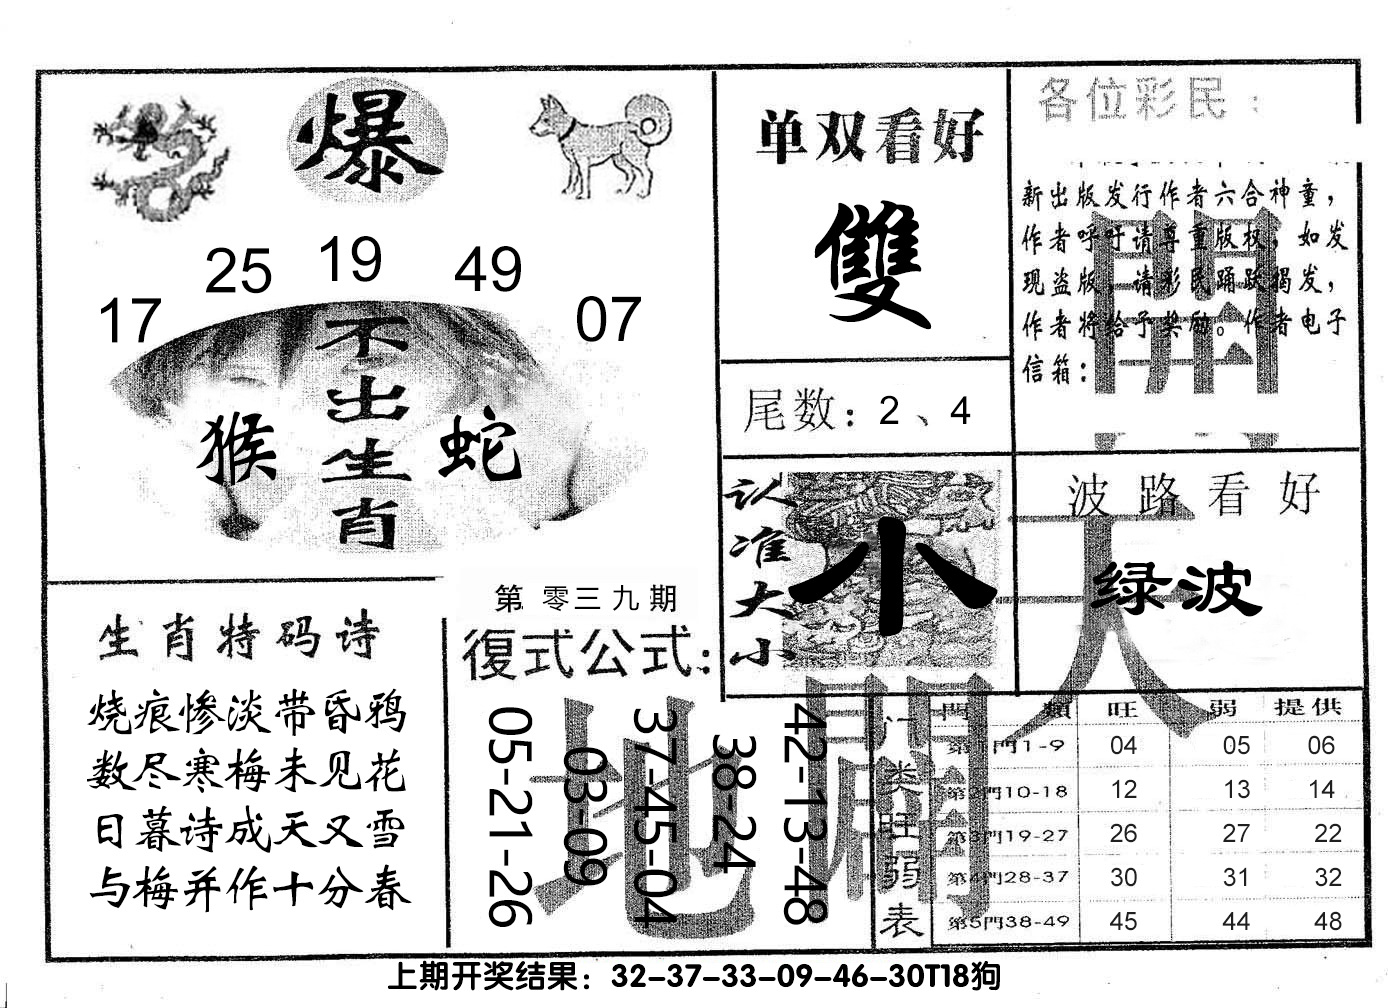 爆
17
25
19
49
07
不出生肖
猴
蛇
单双看好
雙
尾数：2、4
各位彩民：
新出版发行作者六合神童，
作者呼吁请尊重版权，如发
现盗版，请彩民踊跃揭发，
作者将给予奖励。作者电子
信箱：
認准大小
小
波路看好
绿波
天
地
生肖特码诗
烧痕惨淡带昏鸦
数尽寒梅未见花
日暮诗成天又雪
与梅并作十分春
第零三九期
復式公式：
05-21-26
03-09
37-45-04
38-24
42-13-48
门类旺弱表
門類 旺 弱 提供
第1門1-9 04 05 06
第2門10-18 12 13 14
第3門19-27 26 27 22
第4門28-37 30 31 32
第5門38-49 45 44 48
上期开奖结果：32-37-33-09-46-30T18狗